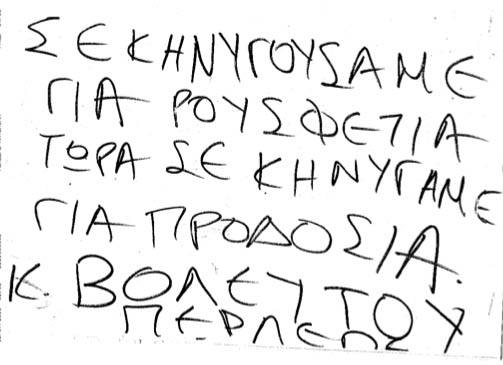 ΣΕ ΚΗΝΥΓΟΥΣΑΜΕ
ΓΙΑ ΡΟΥΣΦΕΤΙΑ
ΤΩΡΑ ΣΕ ΚΗΝΥΓΑΜΕ
ΓΙΑ ΠΡΟΔΟΣΙΑ.
Κ. ΒΟΛΕΥΤΟΥ